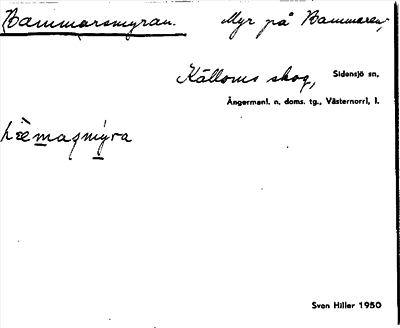 Bammarsmyran. Myr på Bammaren,
Källoms skog, Sidensjö sn,
Ångermanl. n. doms. tg., Västernorrl. l.
Sven Hiller 1950